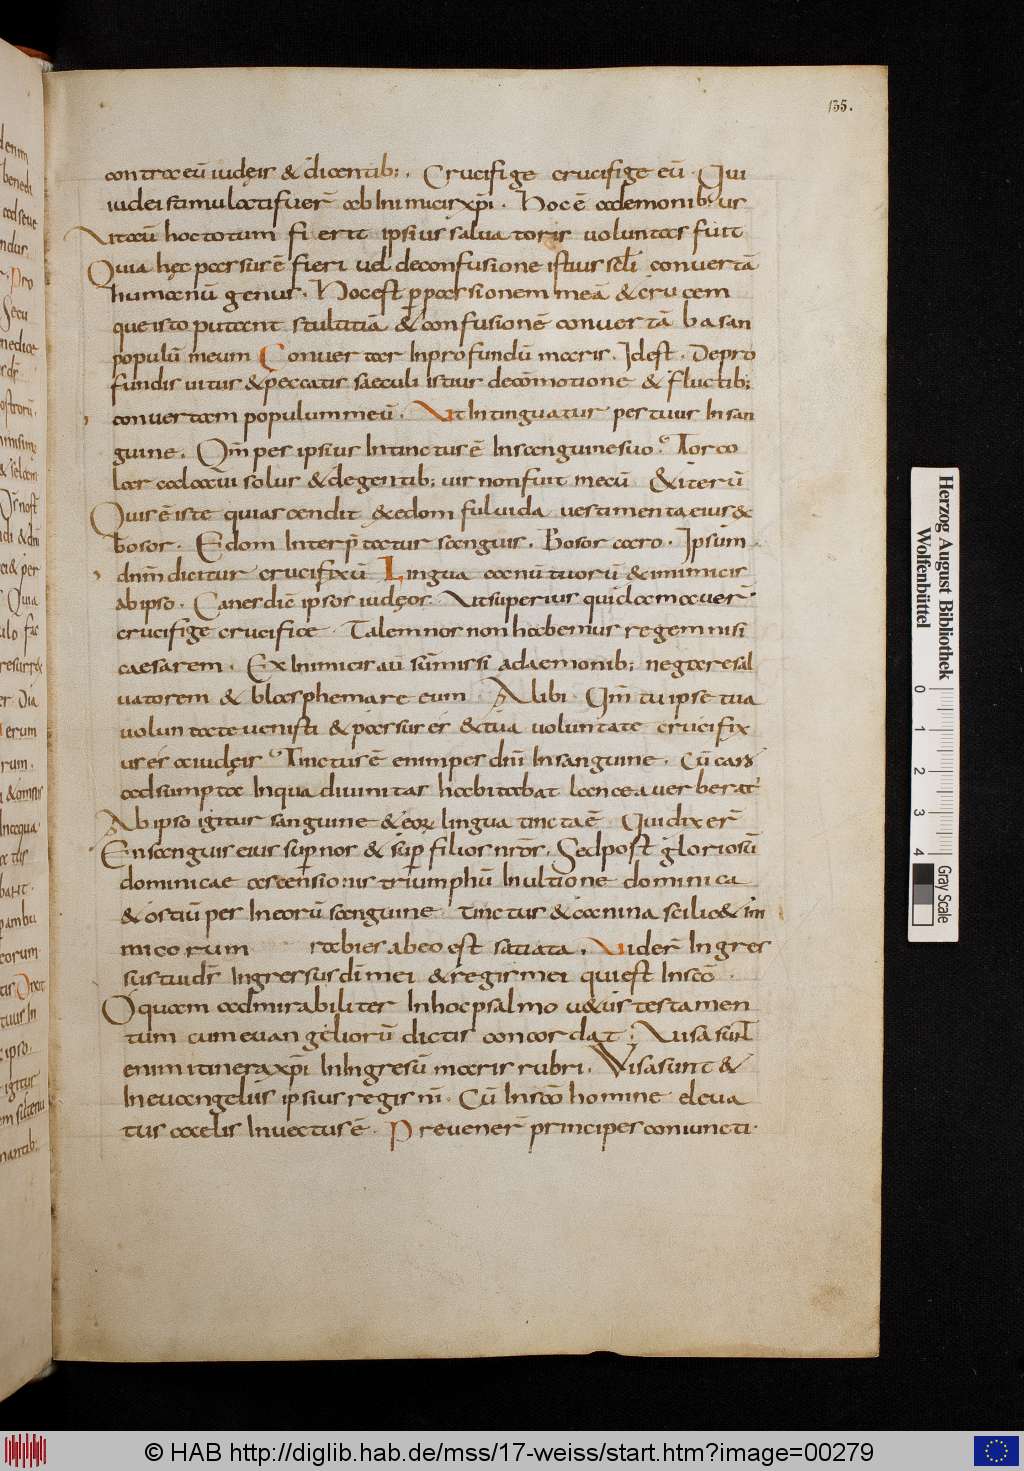 135.
contra eū iudęis & dicentib;. Crucifige crucifige eū. Qui
iudei stimulati fuer̄ ab inimicis xp̄i. Hoc ē ademonib; us
Vt cū hoc totum fierit ipsius saluatoris voluntas fuit
Quia hęc passus ē fieri vel deconfusione istius scl̄i convertā
humanū genus. Hoc est p passionem meā & crucem
que isto putant stultitiā & confusionē convertā basan
populū meum Convertar In profundū maris. Id est. De pro
fundis vitiis & peccatis saeculi istius decōmotione & fluctib;
convertam populum meū. Vt Intinguatur pes tuus In san
guine. Qm̄ pes ipsius Intinctus ē In sanguine suo. Torco
lar calcavi solus & de gentib; vir non fuit mecū & iterū
Quis ē iste qui ascendit & edom fulvida vestimenta eius &
bosor. Edom Interp̄tatur sanguis. Bosor caro. Ipsum
dnm̄ dicitur crucifixū Lingua canū tuorū & inimicis
ab ipso. Canes dic̄ ipsos iudęos. Vt superius quid amaver̄
crucifige crucifice. Talem nos non habemus regem nisi
caesarem. Ex Inimicis aū sum̄issi a daemonib; negare sal
vatorem & blasphemare eum. Alibi. Qm̄ tu ipse tua
voluntate venisti & passus es & tua voluntate crucifix
us es a iudęis Tinctus ē enim pes dnī In sanguine. Cū caro
adsumpta In qua divinitas habitabat lancea verberat̄
Ab ipso igitur sanguine & eoꝝ lingua tincta ē Qui dixer̄
En sanguis eius sup nos & sup filios nr̄os. Sed post gloriosū
dominicae ascensionis triumphū In ultione dominica
& ostiū per In eorū sanguine tinctus & canina scilic& Ini
micorum rabies abeo est satiata. Vider̄ Ingres
sus tui dr̄ Ingressus dī mei & regis mei qui est In scō.
O quam admirabiliter In hoc psalmo vetus testamen
tum cum evangeliorū dictis concordat. Visa sunt
enim itinera xp̄i In Ingresū maris rubri. Visa sunt &
In evangeliis ipsius regis nī. Cū In scō homine eleva
tus a celis Invectus ē. Prevener̄ principes coniuncti.
Herzog August Bibliothek
Wolfenbüttel
0 1 2 3 4
Gray Scale
© HAB http://diglib.hab.de/mss/17-weiss/start.htm?image=00279